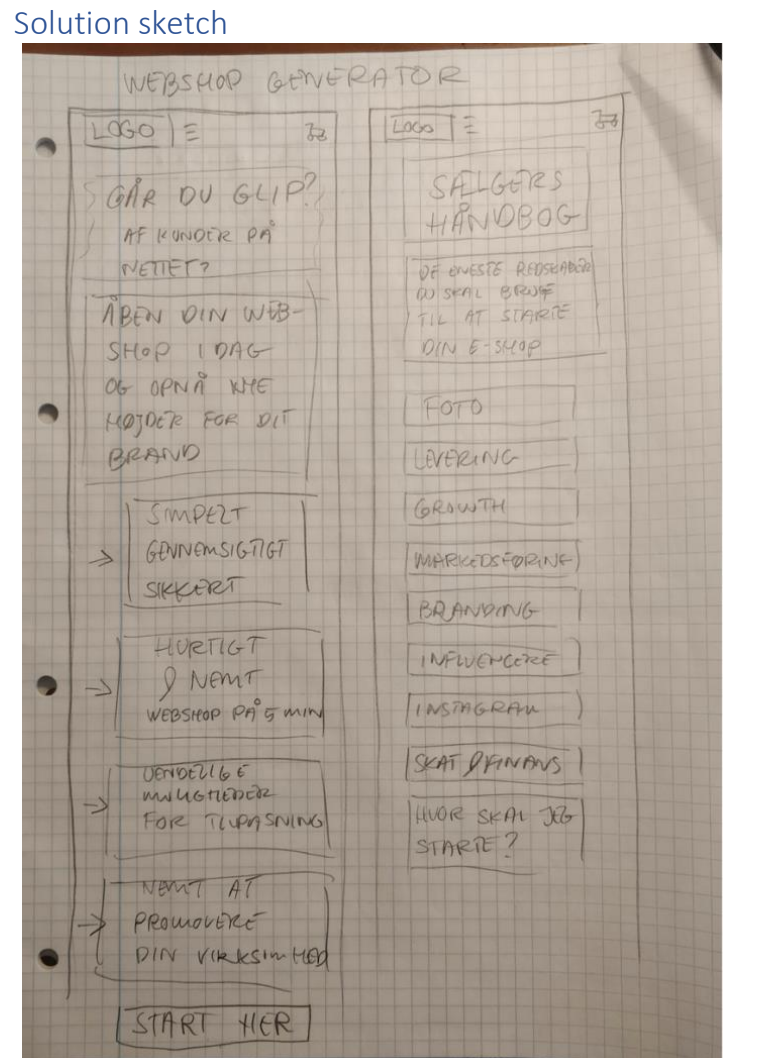 Solution sketch
WEBSHOP GENERATOR
LOGO
GÅR DU GLIP?
AF KUNDER PÅ
NETTET?
ÅBEN DIN WEB-
SHOP I DAG
OG OPNÅ NYE
HØJDER FOR DIT
BRAND
SIMPELT
GENNEMSIGTIGT
SIKKERT
HURTIGT
& NEMT
WEBSHOP PÅ 5 MIN
UENDELIGE
MULIGHEDER
FOR TILPASNING
NEMT AT
PROMOVERE
DIN VIRKSIMHED
START HER
LOGO
SÆLGERS
HÅNDBOG
DE ENESTE REDSKABER
DU SKAL BRUGE
TIL AT STARTE
DIN E-SHOP
FOTO
LEVERING
GROWTH
MARKEDSFØRING
BRANDING
INFLUENCERE
INSTAGRAM
SKAT & FINANS
HVOR SKAL JEG
STARTE?